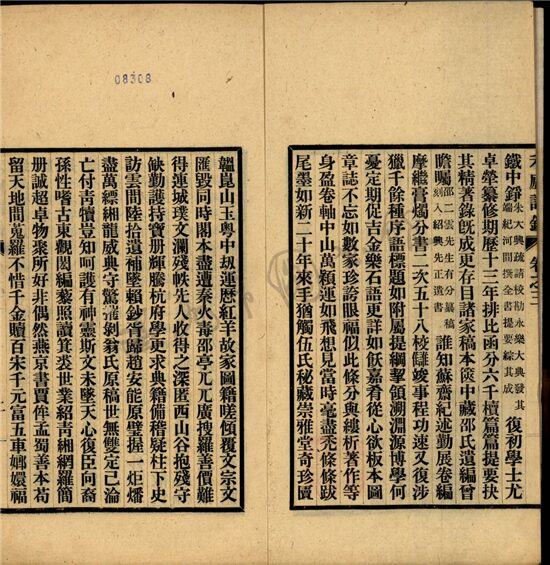 鐵中錚朱大興疏請校勘永樂大典發其端紀河間撰全書提要綜其成復初學士尤
卓犖纂修期歷十三年排比函分六千櫝篇篇提要抉
其精著錄旣成更存目諸家稿本篋中藏邵氏遺編曾
瞻矚邵二雲先生有分纂稿刻入紹興先正遺書誰知蘇齋紀述勤展卷編
摩繼膏燭分書二次五十八校讎竣事程功速又復涉
獵千餘種序語標題如附屬提綱挈領溯淵源博學何
憂定期促吉金樂石語更詳如飫嘉肴從心欲板本圖
章誌不忘如數家珍誇眼福似此條分與縷析著作等
身盈卷軸中山萬穎運如飛想見當時毫盡禿條條跋
尾墨如新二十年來手猶觸伍氏秘藏崇雅堂奇珍匵
08308
韞崑山玉粵中刼運厯紅羊故家圖籍嗟傾覆文宗文
匯毀同時閣本盡遭秦火毒邵亭兀兀廣搜羅善價難
得連城璞文瀾殘帙先人收得之深匿西山谷抱殘守
缺勤護持寶册輝騰杭府學更求典籍備稽疑柱下史
訪雲間陸拾遺補墜賴鈔胥歸趙安能原璧握一炬燔
盡萬縹緗龍威典守驚蕩剝翁氏原稿世無雙定已淪
亡付青犢豈知呵護有神靈斯文未墜天心復臣向裔
孫性嗜古東觀閎編藜照讀箕裘世業紹青緗網羅簡
册誠超卓物聚所好非偶然燕京書賈侔孟蜀善本苟
留天地間蒐羅不惜千金贖百宋千元富五車嫏嬛福